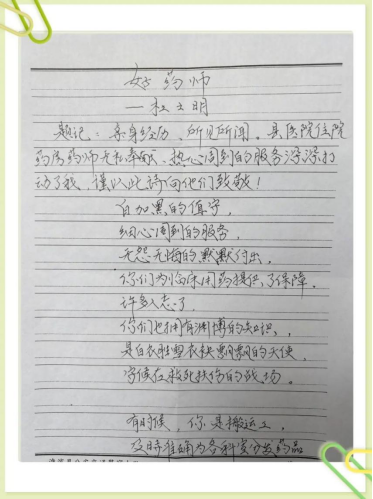 好药师
—杜文明
题记：亲身经历、所见所闻。县医院住院
药房药师无私奉献、热心周到的服务深深打
动了我，谨以此诗向他们致敬！
白加黑的值守，
细心周到的服务，
无怨无悔的默默付出，
你们为临床用药提供了保障。
许多人忘了，
你们也拥有渊博的知识，
是白衣胜雪衣袂飘飘的天使，
守候在救死扶伤的战场。
有时候，你是搬运工，
及时准确为各科室分发药品